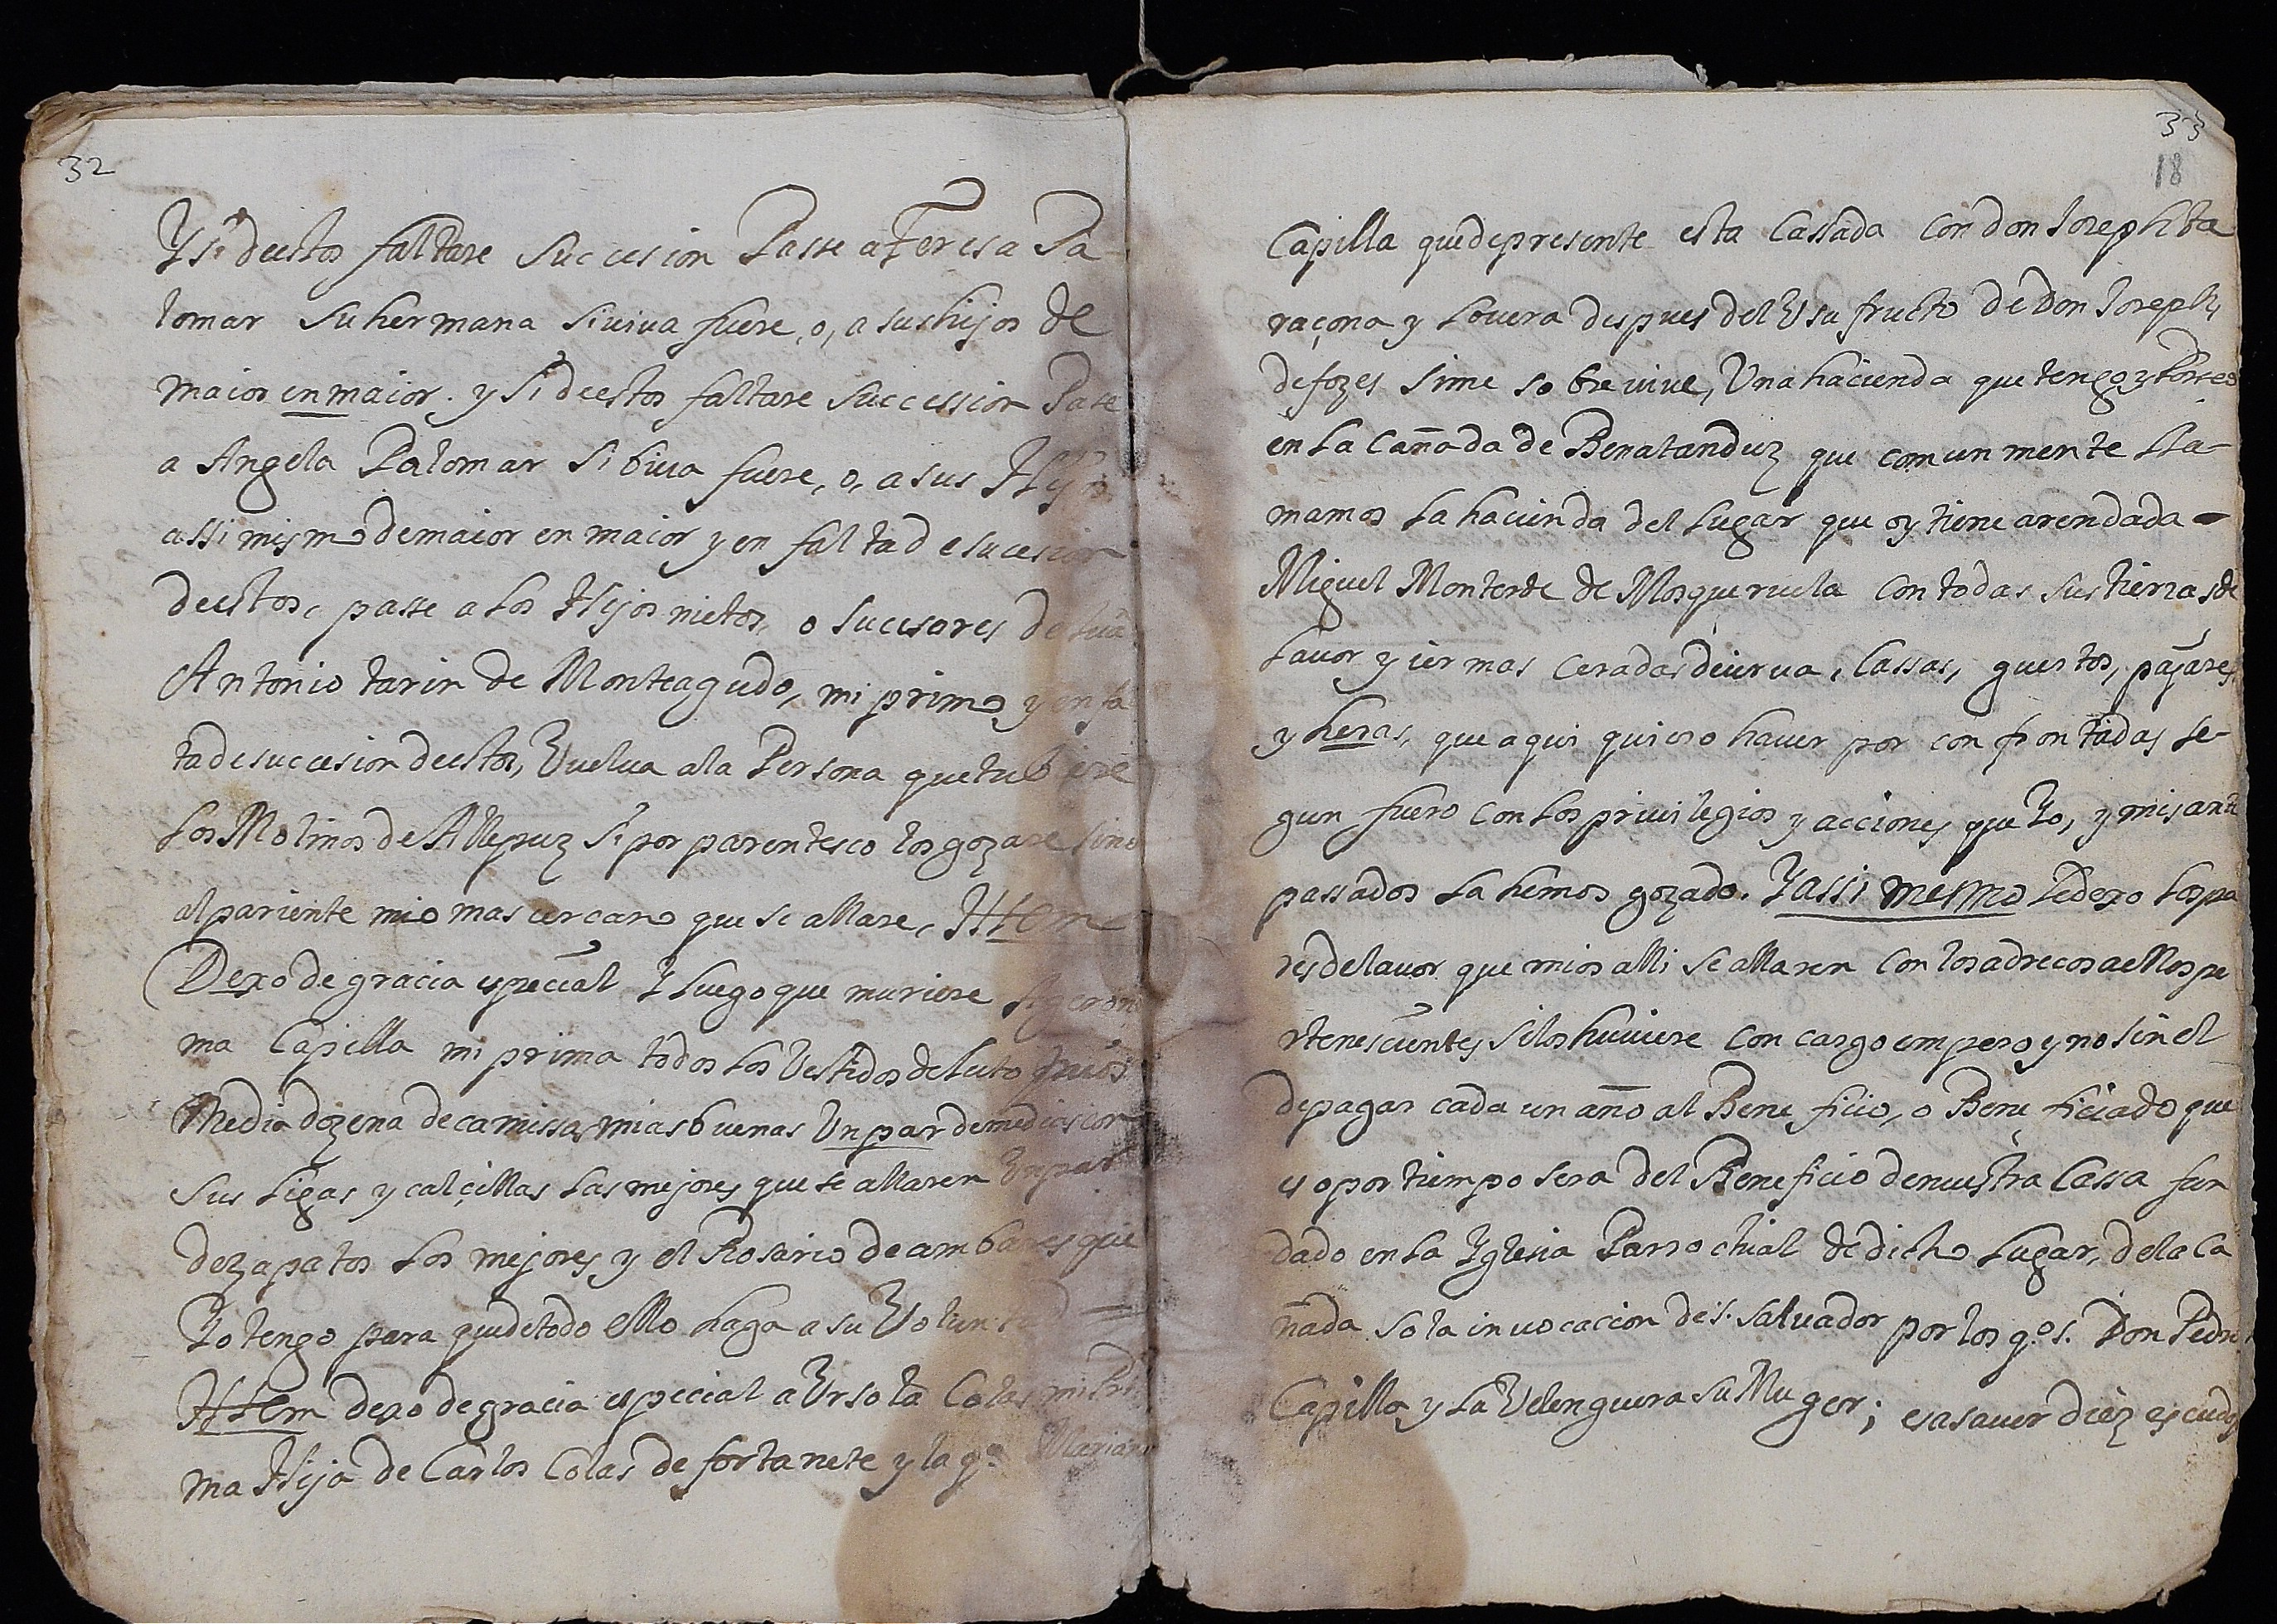 32
Y si deestos faltare Succesion Passe a Teresa Pa-
lomar Su hermana Si viva fuere, o, a sus hijos de
maior en maior. y Si deestos faltare Succession Pase
a Angela Palomar Si biva fuere, o, a sus Hijos
assi mismo de maior en maior y en falta de sucesion
deestos, passe a Los Hijos nietos, o Sucesores de
Antonio tarin de Monteagudo, mi primo y en fa
ta de succesion deestos, Vuelva a la Persona que tubiere
Los Molinos de Allepuz Si por parentesco los gozare sino
al pariente mio mas cercano que se allare, Ittem
Dexo de gracia especial Y Luego que muriere a geroni
ma Capilla mi prima todos Los Vestidos de Luto mios
Media dozena de camissas mias buenas Un par de medias con
Sus Ligas y calçillas Las mejores que se allaren Un par
de zapatos Los mejores y el Rosario de ambares que
Yo tengo para que de todo ello haga a su Voluntad =
Ittem dexo de gracia especial a Ursola Colas mi Pri
ma Hija de Carlos Colas de fortanete y la q.ᵃ Mariana
33
18
Capilla que de presente esta Cassada Con don Joseph ta
raçona y Lovera despues del Usufructo de Don Joseph
de fozes Si me sobrevive, Una hacienda que tengo y Posseo
en La Cañada de Benatanduz que comunmente Lla-
mamos La hacienda del Lugar que oy tiene arendada
Miguel Monterde de Mosqueruela Con todas Sus tierras de
Lavor y iermas Ceradas de ierva, Cassas, guertos, pajares,
y heras, que aqui quiero haver por confrontadas Se-
gun fuero Con Los privilegios y acciones que Yo, y mis ante
passados La hemos gozado. Y assi mesmo Le dexo Los pa
res de lavor que mios alli se allaren Con los adrecos a ellos pe
rtenescientes Si los huviere Con cargo empero y no Sin el
de pagar cada un año al Beneficio, o Beneficiado que
es o por tiempo sera del Beneficio de nuestra Cassa fun
dado en La Yglesia Parrochial de dicho Lugar, de la Ca
ñada so la invocacion de S. Salvador por los q.ᵒˢ. Don Pedro
Capilla y La Velenguera Su Muger; es a saver diez escudos